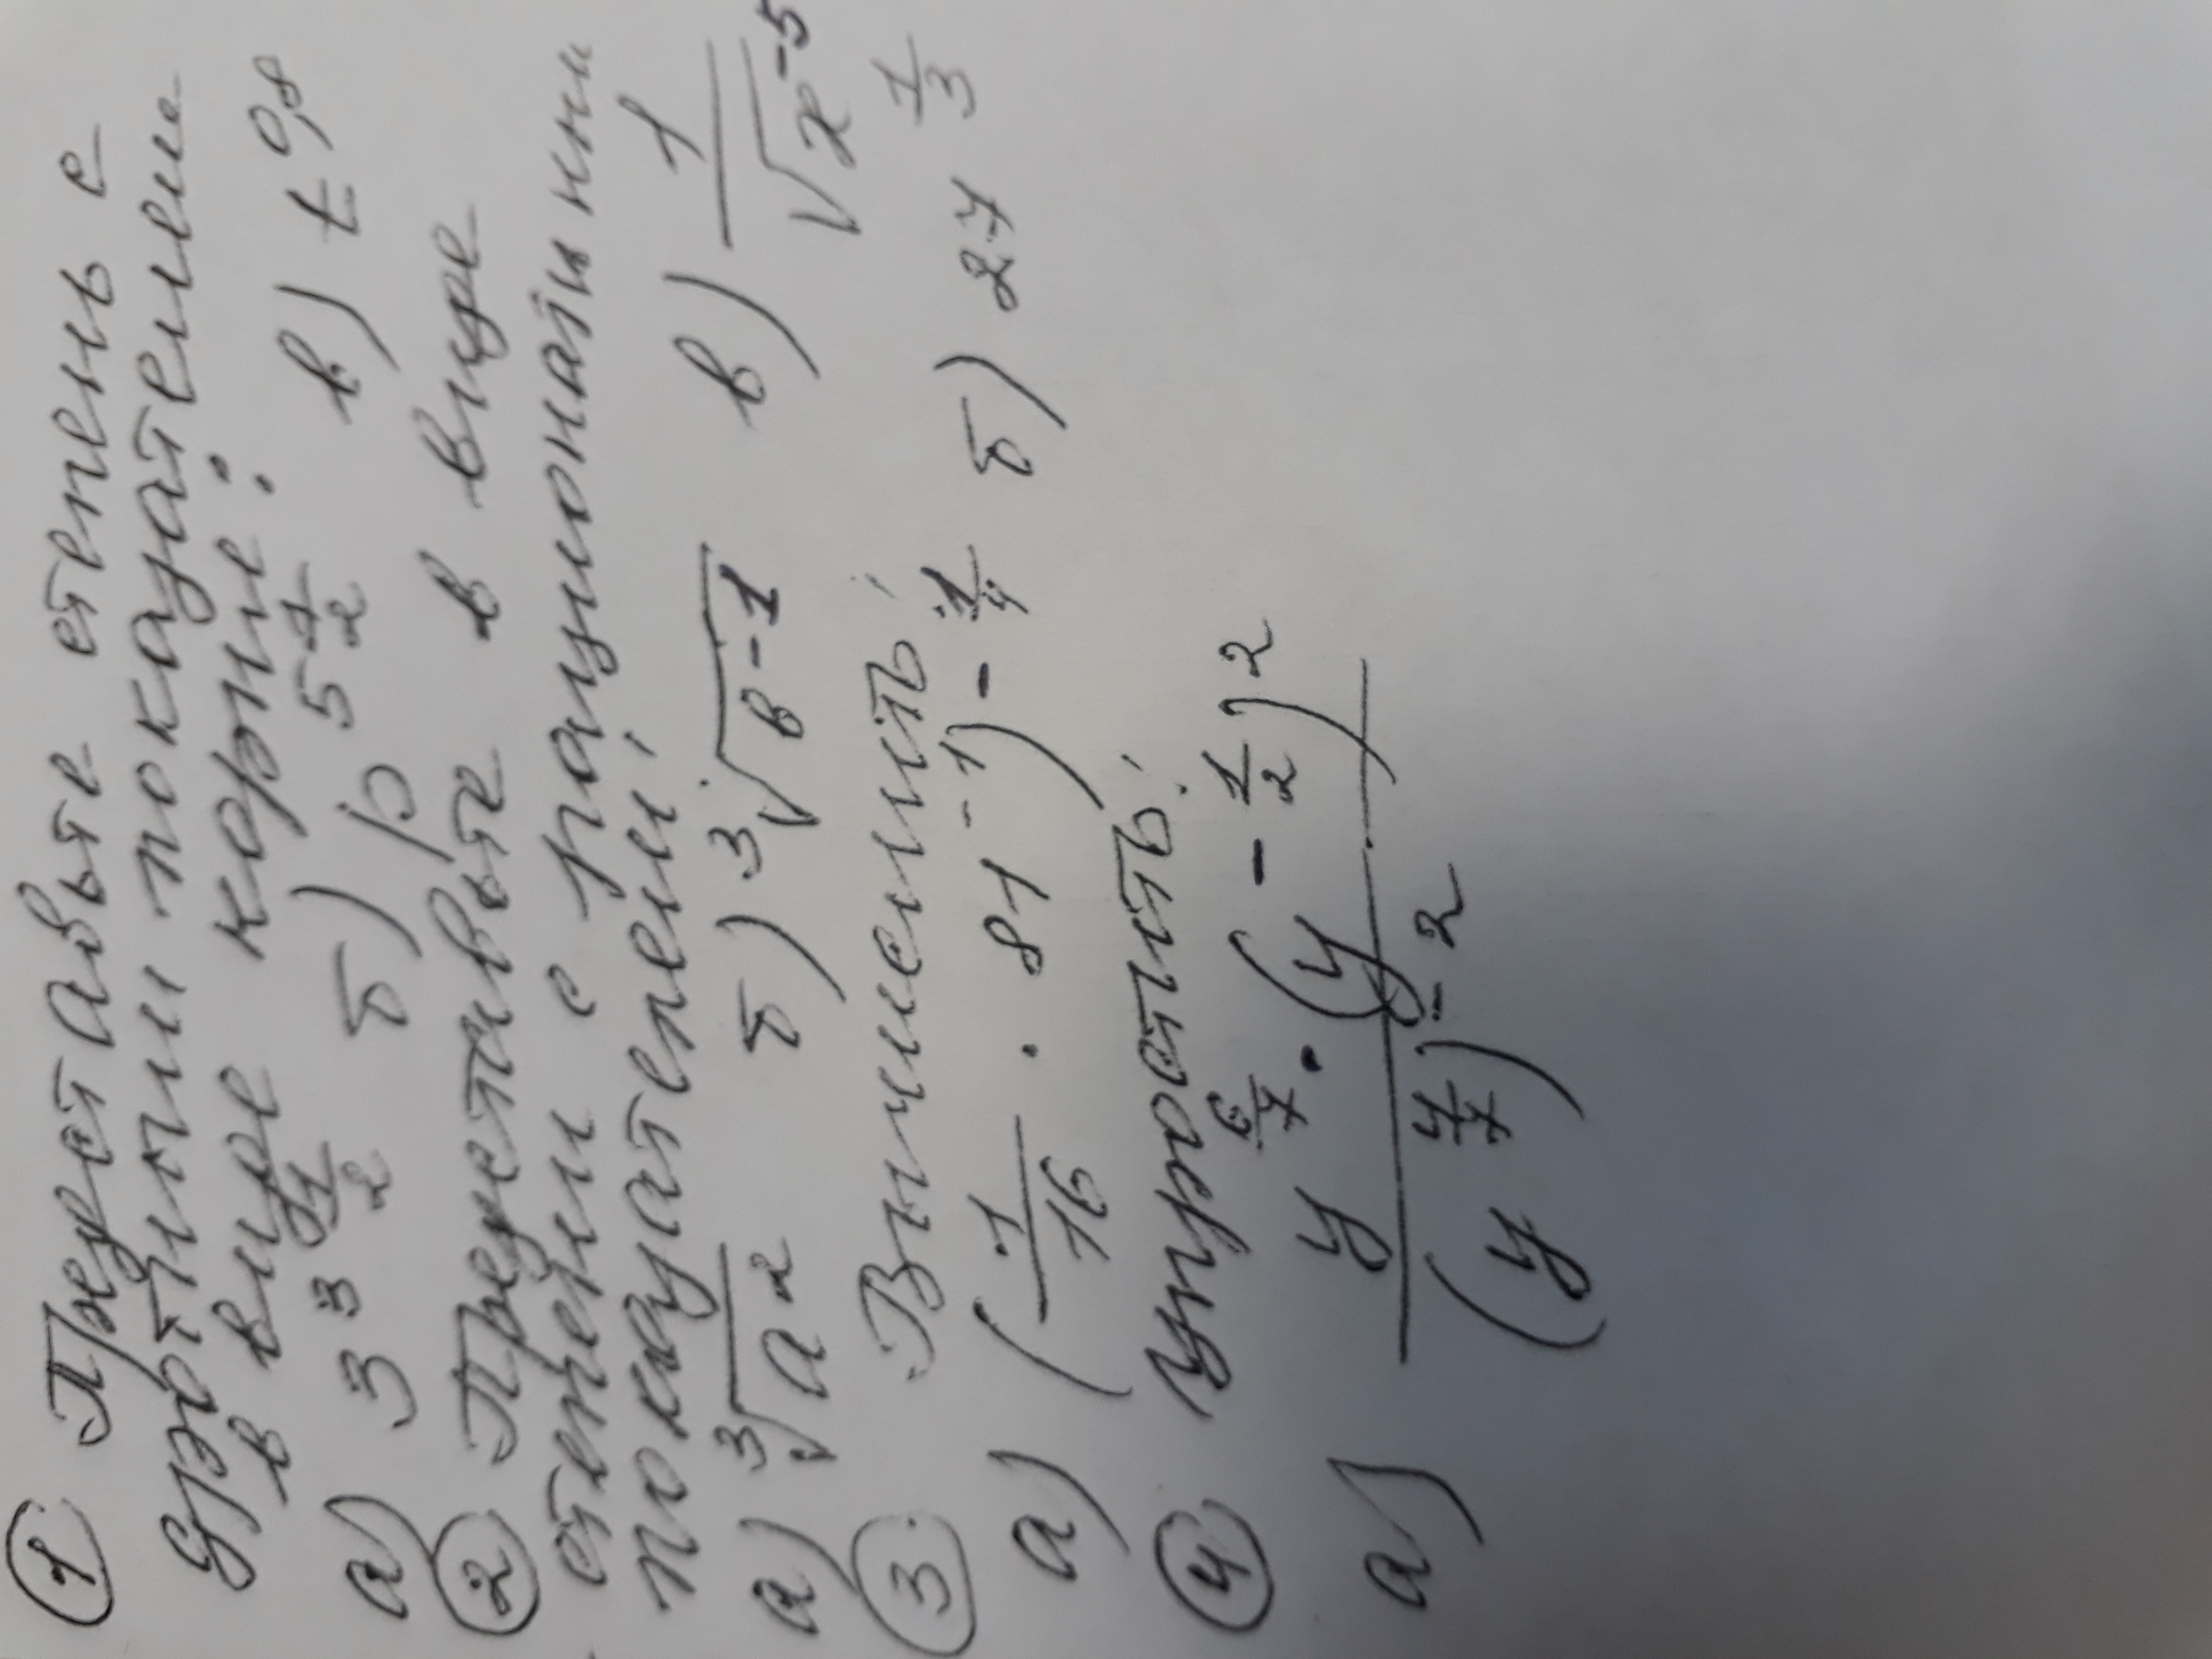 ① Представьте степень с
дробным показателем
в виде корня:
а) 3^{3\frac{1}{2}} б) p^{5\frac{1}{2}} в) t^{0,8}
② Представьте в виде
степени с рациональным
показателем:
а) \sqrt[3]{a^2} б) \sqrt[3]{в^{-1}} в) \frac{1}{\sqrt{x^{-5}}}
③ Вычислить:
а) (\frac{1}{16} · 81^{-1})^{-\frac{1}{4}} б) 27^{\frac{1}{3}}
④ Упростить:
а) \frac{y^{\frac{6}{7}} · (y^{-\frac{1}{2}})^2}{(y^{\frac{4}{7}})^{-2}}